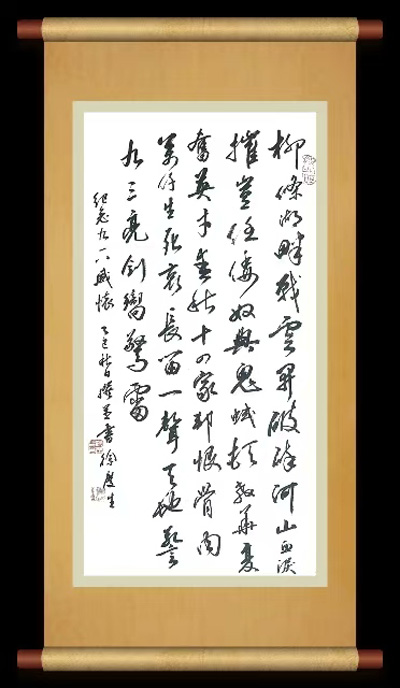 柳條湖畔戰雲開破碎河山血淚
摧豈任倭奴與鬼蜮頓教華夏
奮英才春秋十四家邦恨骨肉
萬仟生死哀長留一聲天地
九三亮劍響驚雷
紀念九一八感懷 乙巳秋日撰並書 徐慶生